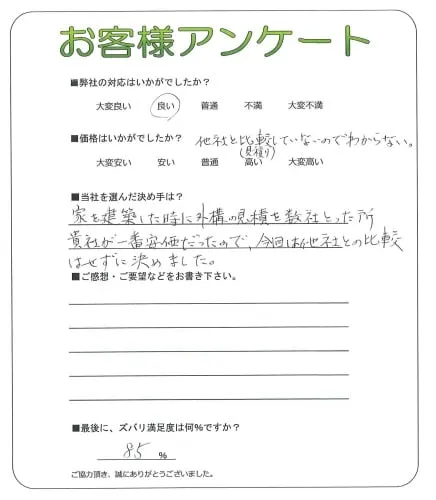 お客様アンケート
■弊社の対応はいかがでしたか？
大変良い 良い 普通 不満 大変不満
■価格はいかがでしたか？ 他社と比較していないのでわからない。
(見積り)
大変安い 安い 普通 高い 大変高い
■当社を選んだ決め手は？
家を建築した時に外構の見積を数社とった所
貴社が一番安価だったので、今回は他社との比較
はせずに決めました。
■ご感想・ご要望などをお書き下さい。
■最後に、ズバリ満足度は何%ですか？
85 %
ご協力頂き、誠にありがとうございました。